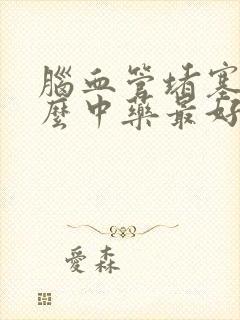 腦血管堵塞
麼中藥最好
愛森